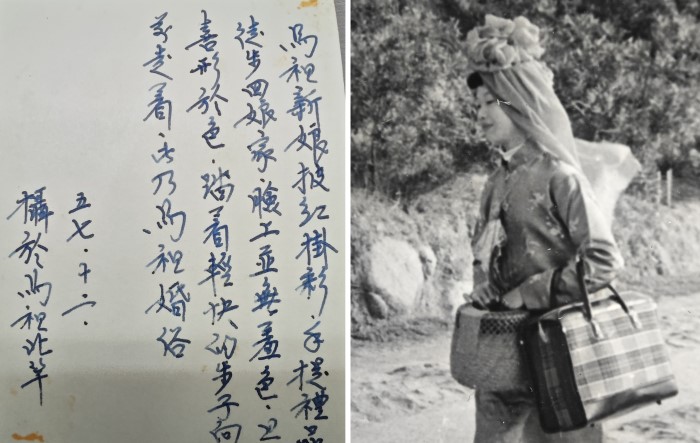 馬祖新娘披紅掛彩．手提禮品
徒步回娘家．臉上並無羞色．且
喜形於色．踏著輕快的步子向
前走著．此乃馬祖婚俗
五七．十二．
攝於馬祖北竿